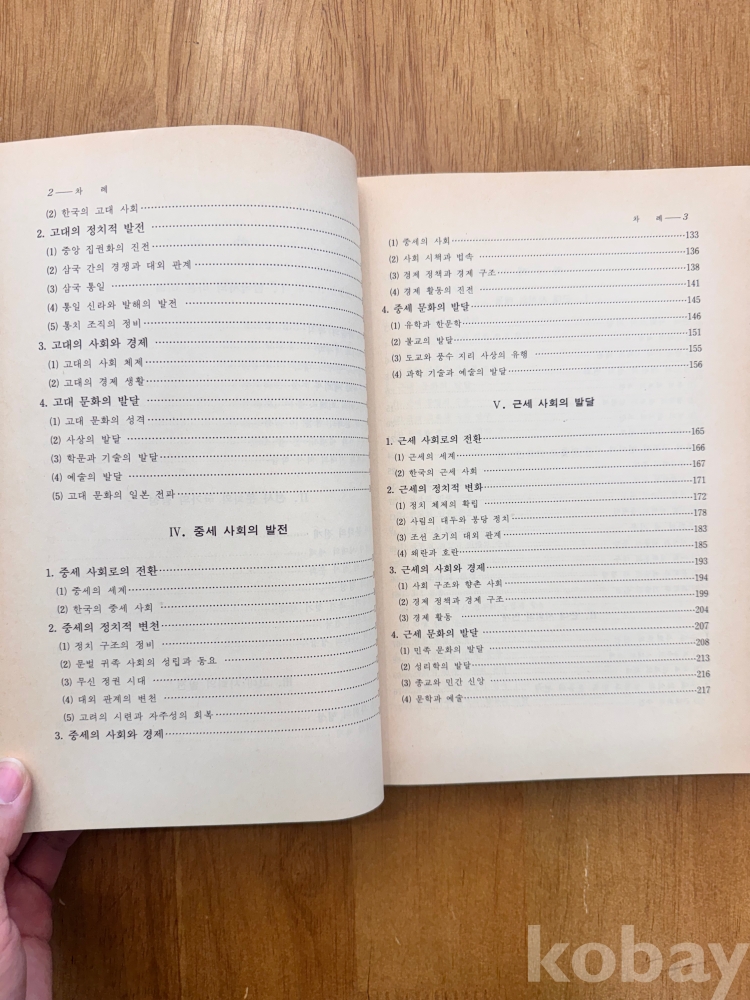 2 — 차 례
(2) 한국의 고대 사회
2. 고대의 정치적 발전
(1) 중앙 집권화의 진전
(2) 삼국 간의 경쟁과 대외 관계
(3) 삼국 통일
(4) 통일 신라와 발해의 발전
(5) 통치 조직의 정비
3. 고대의 사회와 경제
(1) 고대의 사회 체제
(2) 고대의 경제 생활
4. 고대 문화의 발달
(1) 고대 문화의 성격
(2) 사상의 발달
(3) 학문과 기술의 발달
(4) 예술의 발달
(5) 고대 문화의 일본 전파
Ⅳ. 중세 사회의 발전
1. 중세 사회로의 전환
(1) 중세의 세계
(2) 한국의 중세 사회
2. 중세의 정치적 변천
(1) 정치 구조의 정비
(2) 문벌 귀족 사회의 성립과 동요
(3) 무신 정권 시대
(4) 대외 관계의 변천
(5) 고려의 시련과 자주성의 회복
3. 중세의 사회와 경제
차 례 — 3
(1) 중세의 사회 133
(2) 사회 시책과 법속 136
(3) 경제 정책과 경제 구조 138
(4) 경제 활동의 진전 141
4. 중세 문화의 발달 145
(1) 유학과 한문학 146
(2) 불교의 발달 151
(3) 도교와 풍수 지리 사상의 유행 155
(4) 과학 기술과 예술의 발달 156
Ⅴ. 근세 사회의 발달
1. 근세 사회로의 전환 165
(1) 근세의 세계 166
(2) 한국의 근세 사회 167
2. 근세의 정치적 변화 171
(1) 정치 체제의 확립 172
(2) 사림의 대두와 붕당 정치 178
(3) 조선 초기의 대외 관계 183
(4) 왜란과 호란 185
3. 근세의 사회와 경제 193
(1) 사회 구조와 향촌 사회 194
(2) 경제 정책과 경제 구조 199
(3) 경제 활동 204
4. 근세 문화의 발달 207
(1) 민족 문화의 발달 208
(2) 성리학의 발달 213
(3) 종교와 민간 신앙 216
(4) 문학과 예술 217
kobay